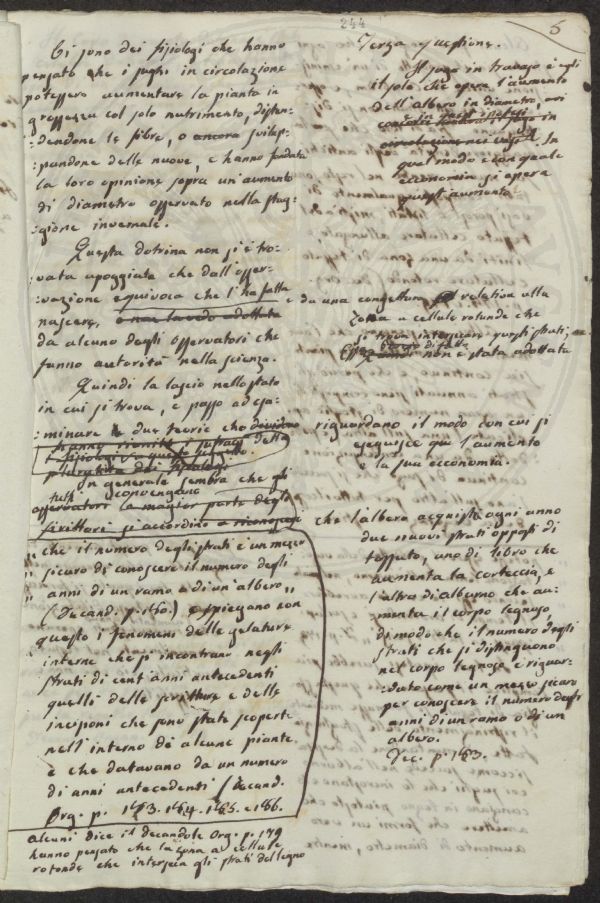 244
5
Ci sono dei fisiologi che hanno
pensato che i sughi in circolazione
potessero aumentare la pianta in
grossezza col solo nutrimento, disten-
:dendone le fibre, o ancora svilup-
:pandone delle nuove, e hanno fondata
la loro opinione sopra un aumento
di diametro osservato nella stag-
:gione invernale.
Questa dotrina non si è tro-
:vata apoggiata che dall'osser-
:vazione equivoca che l'ha fatta
nascere, e non la vedo adottata
da alcuno degli osservatori che
fanno autorità nella scienza.
Quindi la lascio nello stato
in cui si trova, e passo ad esa-
:minare le due teorie che dividono
i fisiologi su questo soggetto.
pluralità dei fisiologi
In generale sembra che gli
tutti convengano
osservatori la maggior parte degli
scrittori si accordino a riconoscere
„ che il numero degli strati è un mezzo
„ sicuro di conoscere il numero degli
„ anni di un ramo e di un albero „
(Decand. p. 180.) e spiegano con
questo i fenomeni delle gelature
interne che si incontrano negli
strati di cent'anni antecedenti
quelli delle scritture e delle
incisioni che sono state scoperte
nell'interno di alcune piante,
e che datavano da un numero
di anni antecedenti (Decand.
Org. p. 183. 184. 185. e 186.
alcuni dice il Decandole Org. p. 179
hanno pensato che la zona a cellule
rotonde che interseca gli strati del legno
Terza questione.
Il sugo in travaso è egli
il solo che opera l'aumento
dell'albero in diametro, ovi
In
qual modo e con quale
economia si opera
quest'aumento
e da una congettura relativa alla
zona a cellule rotonde che
si trova intersecare quegli strati;
non è stata adottata
riguardano il modo con cui si
eseguisce quell'aumento
e la sua economia.
che l'albero acquista ogni anno
due nuovi strati opposti di
tessuto, uno di libro che
aumenta la corteccia, e
l'altro di alburno che au-
menta il corpo legnoso,
di modo che il numero degli
strati che si distinguono
nel corpo legnoso è riguar-
:dato come un mezzo sicuro
per conoscere il numero degli
anni di un ramo o di un
albero.
Dec. p. 183.